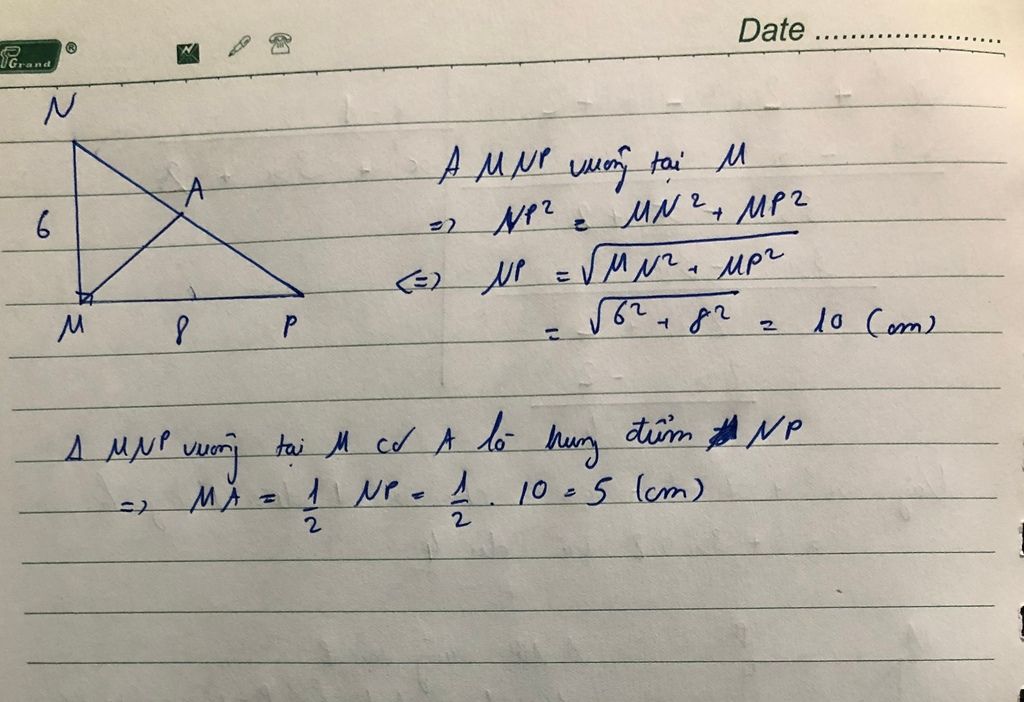 Grand ®
Date ......................
N
A
6
M
8
P
Δ MNP vuông tại M
=> NP² = MN² + MP²
<=> NP = √MN² + MP²
= √6² + 8² = 10 (cm)
Δ MNP vuông tại M có A là trung điểm NP
=> MA = 1/2 NP = 1/2 . 10 = 5 (cm)